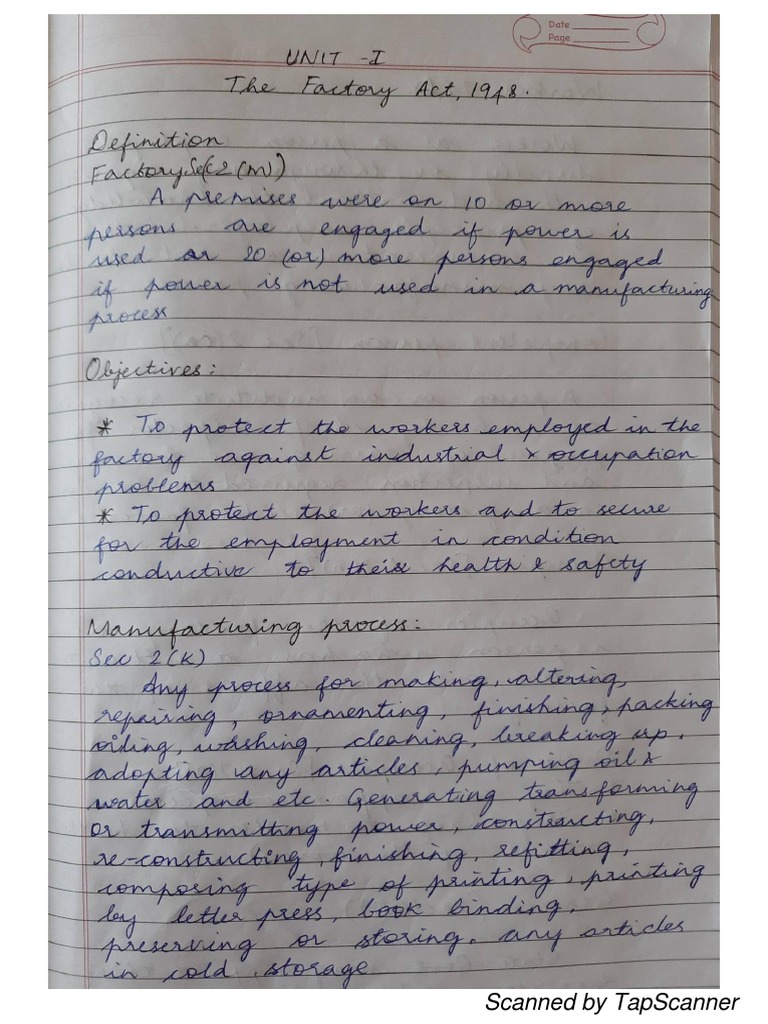 Date
Page
UNIT - I
The Factory Act, 1948.
Definition
Factory Sec 2 (m)
A premises were on 10 or more
persons are engaged if power is
used or 20 (or) more persons engaged
if power is not used in a manufacturing
process
Objectives:
* To protect the workers employed in the
factory against industrial & occupation
problems
* To protect the workers and to secure
for the employment in condition
conductive to their health & safety
Manufacturing process:
Sec 2 (K)
Any process for making, altering,
repairing, ornamenting, finishing, packing
oiling, washing, cleaning, breaking up,
adopting any articles, pumping oil &
water and etc. Generating transforming
or transmitting power, constructing,
re-constructing, finishing, refitting,
composing type of printing, printing
by letter press, book binding,
preserving or storing, any articles
in cold storage
Scanned by TapScanner